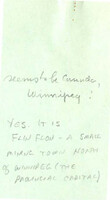 Winnipeg!
YES, IT IS
FLIN FLON - A SMALL
MINING TOWN NORTH
OF WINNIPEG (THE
PROVINCIAL CAPITAL)